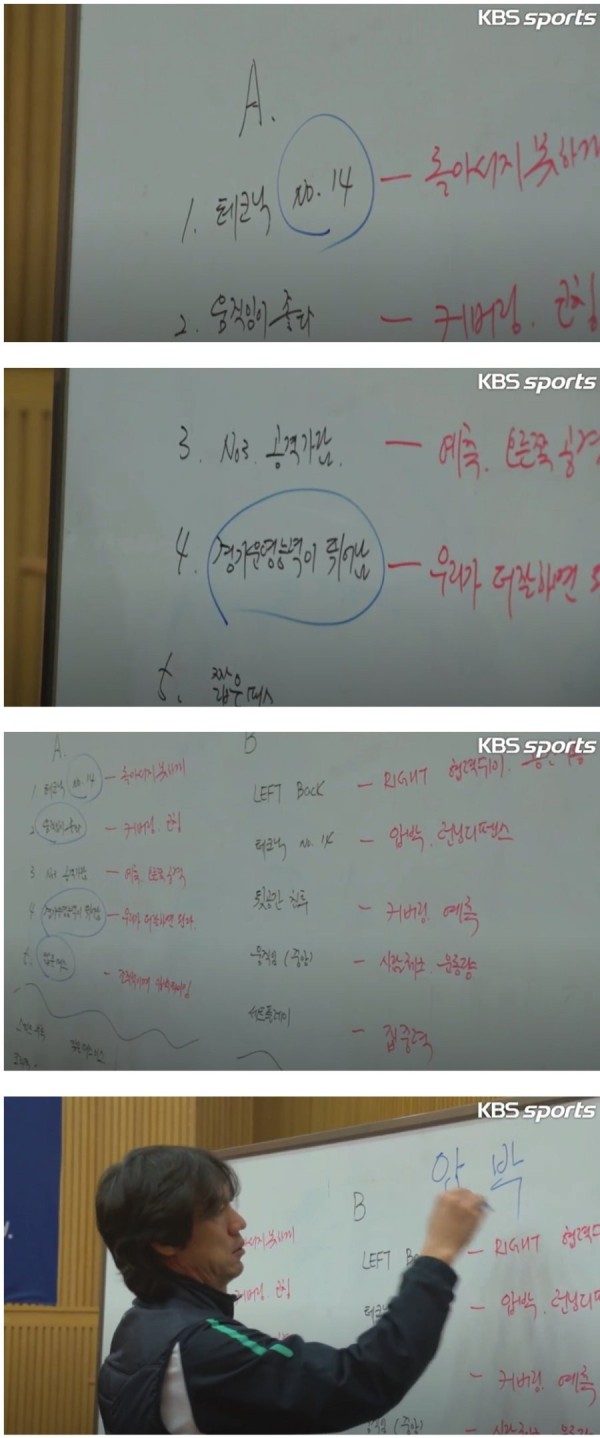 KBS sports
A.
1. 테크닉 no. 14 — 돌아서지 못하게
2. 움직임이 좋다 — 커버링. 근칭
KBS sports
3. No3. 공격가담. — 예측. 오른쪽 공격
4. 경기운영능력이 뛰어남 — 우리가 더 잘하면
5. 짧은패스
KBS sports
A.
1 테크닉 no. 14 — 돌아서지 못하게
2. 움직임이 좋다 — 커버링.
3 No3 공격가담 — 예측. 오른쪽 공격
4 경기운영능력이 뛰어남 — 우리가 더 잘하면 된다.
5.
B
LEFT BACK — RIGHT 협력
테크닉 no. 14 — 압박. 런닝디펜스
뒷공간 침투 — 커버링. 예측
움직임 (중앙) —
세트플레이 — 집중력
KBS sports
압박
B
LEFT Back — RIGHT 협력
— 압박. 런닝디
— 커버링. 예측
(중앙)